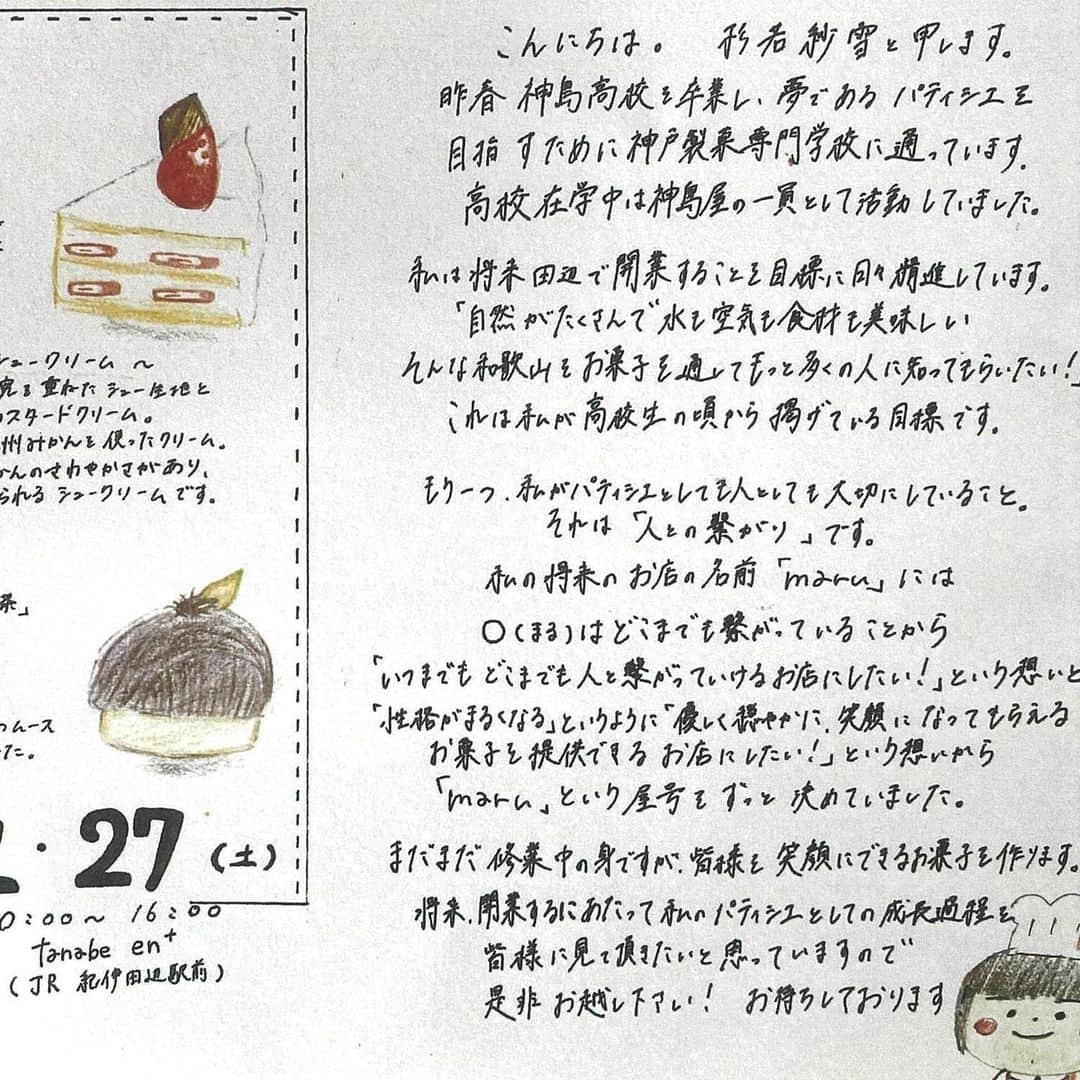 シュークリーム ～
究を重ねたシュー生地と
カスタードクリーム。
州みかんを使ったクリーム。
かんのさわやかさがあり、
られるシュークリームです。
茶」
のムース
た。
・27(土)
0:00～16:00
tanabe en+
(JR 紀伊田辺駅前)
こんにちは。 杉若紗雪と申します。
昨春 神島高校を卒業し、夢である パティシエを
目指すために神戸製菓専門学校に通っています。
高校在学中は神島屋の一員として活動していました。
私は将来田辺で開業することを目標に日々精進しています。
「自然がたくさんで水も空気も食材も美味しい
そんな和歌山をお菓子を通してもっと多くの人に知ってもらいたい!」
これは私が高校生の頃から掲げている目標です。
もう一つ、私がパティシエとしても人としても大切にしていること。
それは「人との繋がり」です。
私の将来のお店の名前「maru」には
〇(まる)はどこまでも繋がっていることから
「いつまでもどこまでも人と繋がっていけるお店にしたい!」という想いと
「性格がまるくなる」というように「優しく穏やかに、笑顔になってもらえる
お菓子を提供できるお店にしたい!」という想いから
「maru」という屋号をずっと決めていました。
まだまだ修業中の身ですが、皆様を笑顔にできるお菓子を作ります。
将来、開業するにあたって私のパティシエとしての成長過程を
皆様に見て頂きたいと思っていますので
是非お越し下さい! お待ちしております